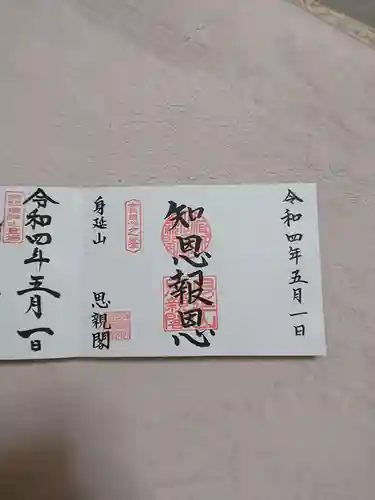 令和四年五月一日
知恩報恩
身延山 思親閣
令和四年五月一日